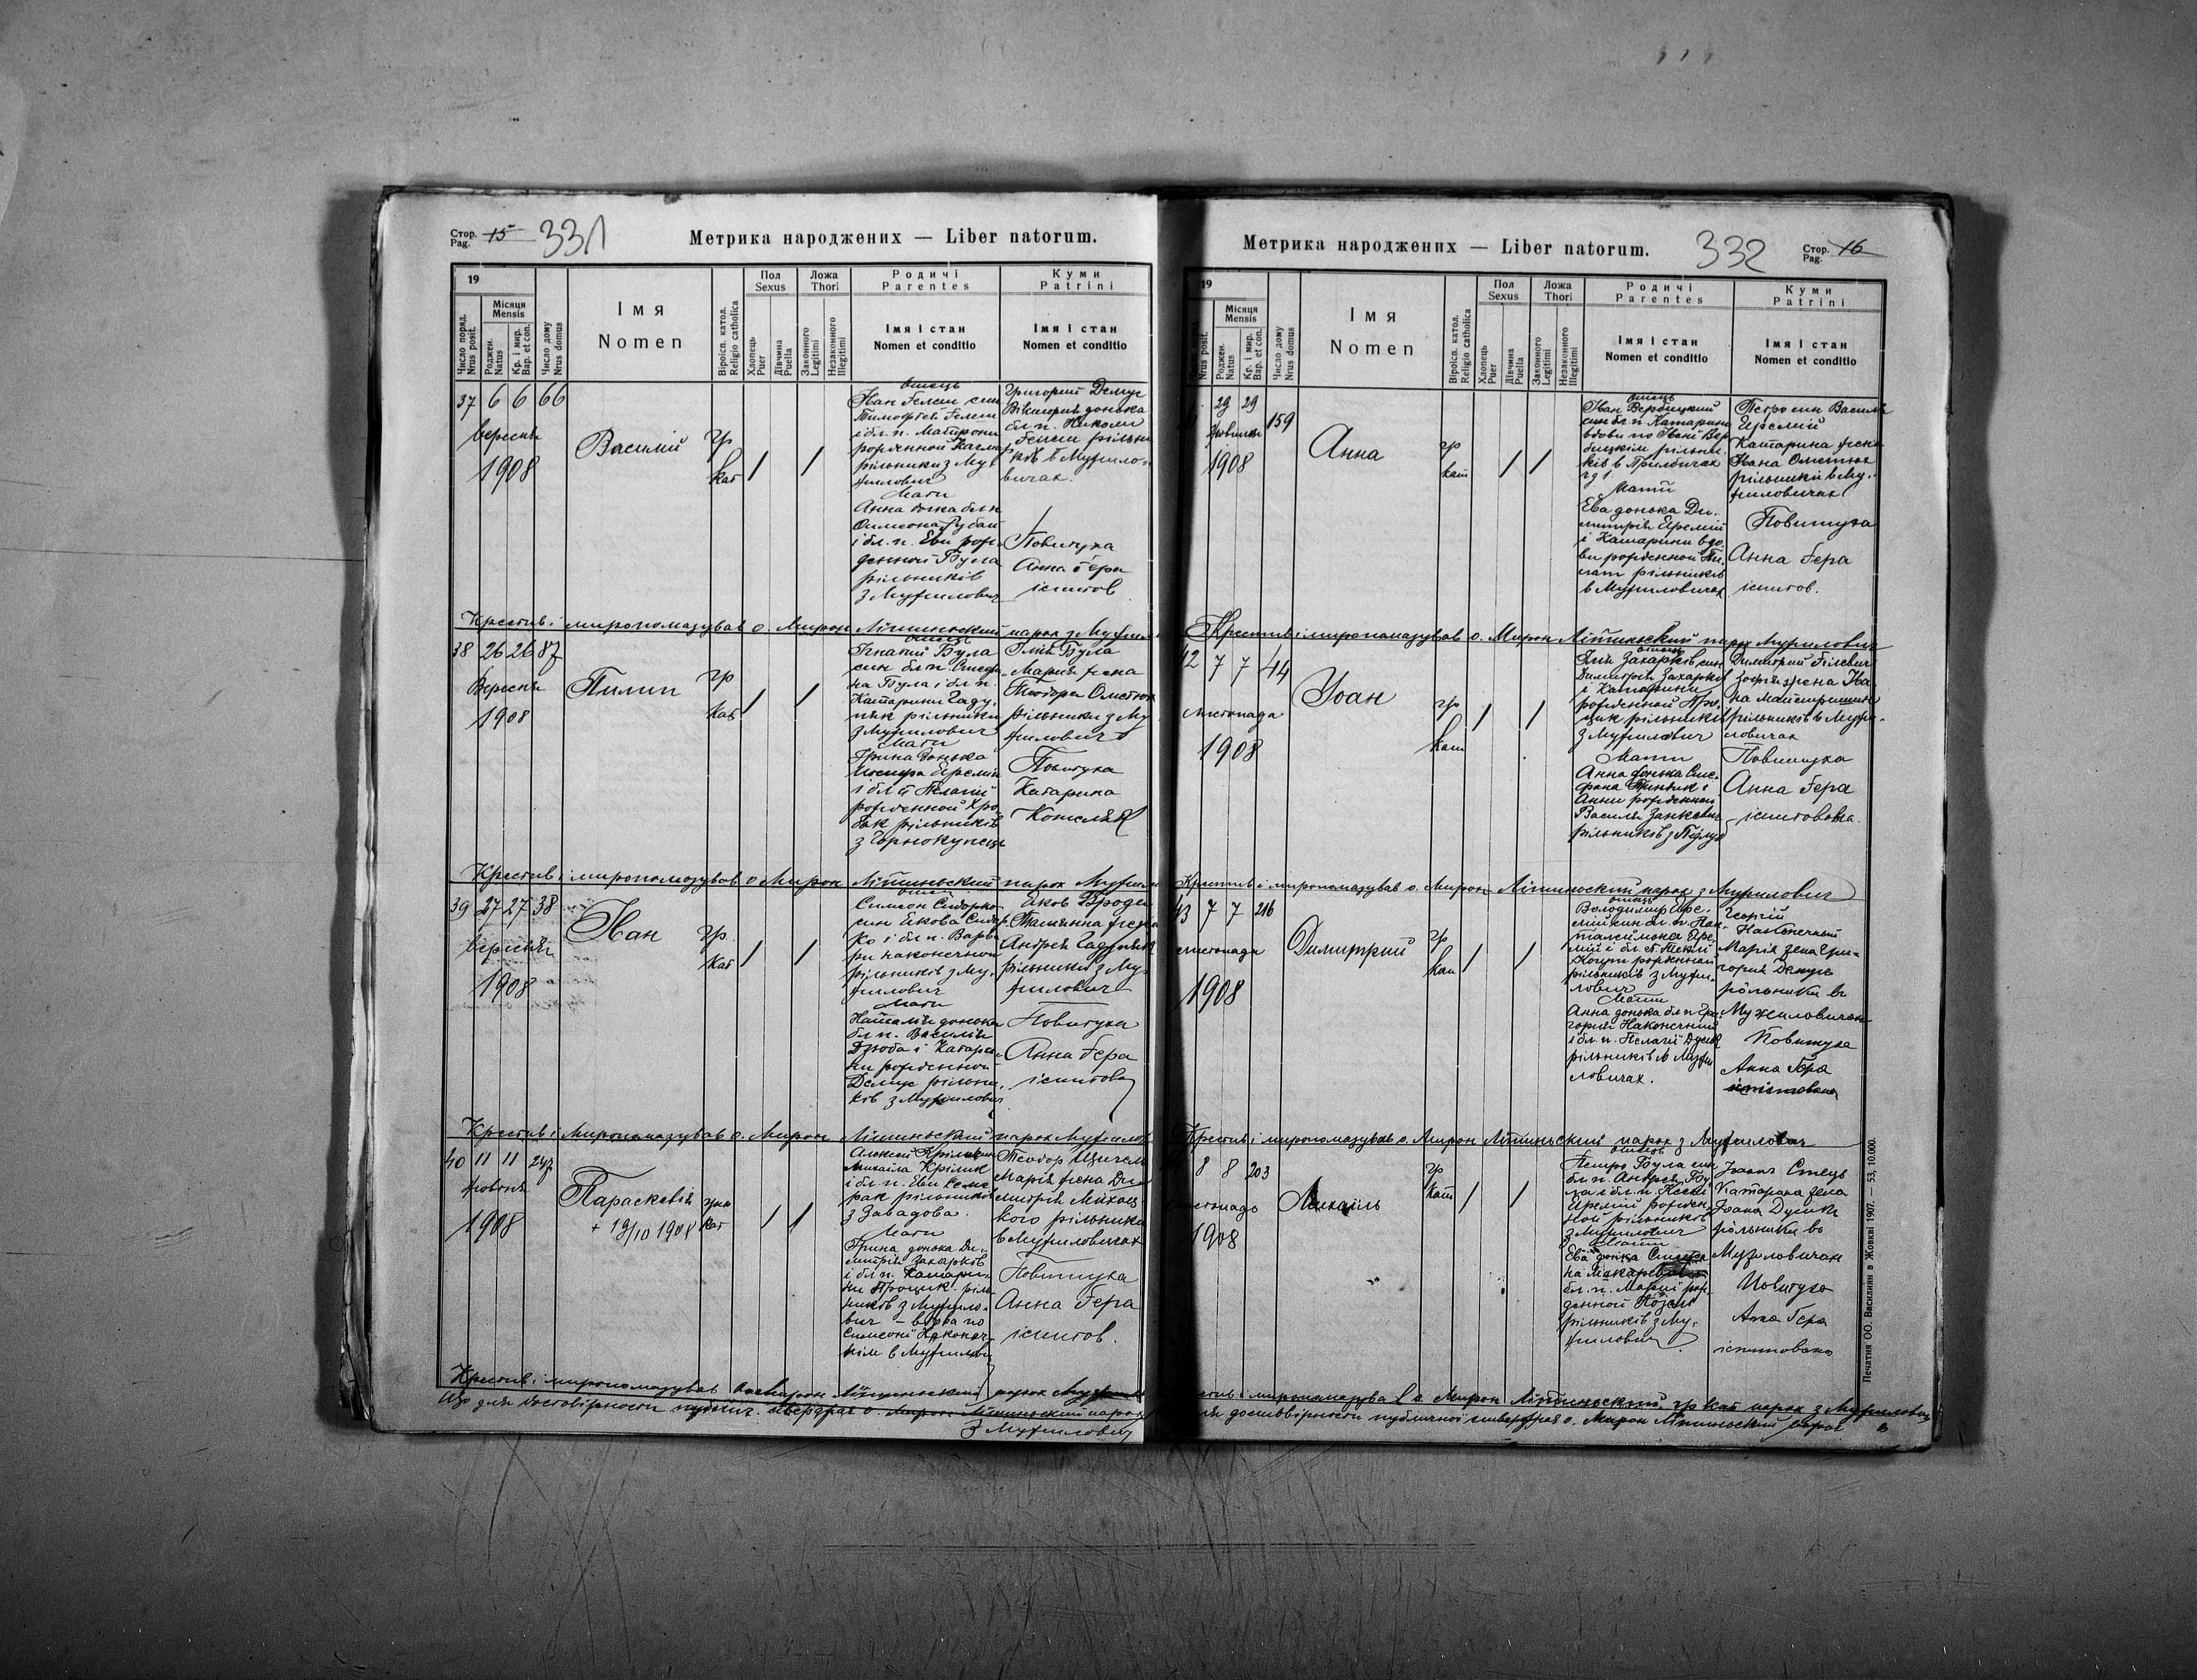 Стор. 15 331
Pag.
Метрика народжених — Liber natorum.
19
Число поряд. Nrus posit.
Місяця Mensis
Роджен. Natus
Кр. і мир. Bap. et con.
Число дому Nrus domus
Імя
Nomen
Віроісп. катол. Religio catholica
Пол Sexus
Хлопець Puer
Дівчина Puella
Ложа Thori
Законного Legitimi
Незаконного Illegitimi
Родичі
Parentes
Імя і стан
Nomen et conditio
Куми
Patrini
Імя і стан
Nomen et conditio
37 6 6 66
вересня
1908
Василий
гр
кат
отець
Иван Гелеш син
Тимофтея Гелеш
і бл. п. Матрони
рожденной
рільники з Му
жилович
Мати
Анна донка бл п
Симеона
і бл. п. Еви рож
денной Була
рільників
з Мужилович
Григорий Демус
Віктория донька
бл п. Николи
Гелеш рільни
ків в Мужило
вичах.
Повитуха
Анна Гера
іспитов
Крестив і миропомазував о. Мирон Літинський парох з Мужил
38 26 26 87
Вересня
1908
Пилип
гр
кат
отець
Игнатий Була
син бл п Стефа
на Була і бл п
Катарини Гаду
няк рільники
з Мужилович
Мати
Ірина донька
Иосифа Яремій
і бл п Пелагиї
рожденной Хро
бак рільників
з Чорнокунець
Ілія Була
Мария жена
Теодора Омстюк
рільники з Му
жилович
Повитуха
Катарина
Кошеляк
Крестив і миропомазував о Мирон Літинський парох Мужил
39 27 27 38
вересня
1908
Иван
гр
кат
отець
Симеон Сидорко
син Якова Сидор
ко і бл п. Варва
ри наконечной
рільників з Му
жилович
Мати
Наталия донька
бл п. Василия
Дзюба і Катари
ни рожденной
Демус рільни
ків з Мужилович
Яков Бродеи
Татянна жена
Андрея Гадуняк
рільники з Му
жилович
Повитуха
Анна Гера
іспитов
Крестив і миропомазував о. Мирон Літинський парох Мужилов
40 11 11 247
жовтня
1908
Параскевія
+ 19/10 1908
грек
кат
Алексей Крілик син
Михаила Крілик
і бл. п. Еви Семе
рак рільників
з Завадова.
Мати
Ірина донька Ди
митрия Захарків
і бл п. Катари
ни Процик ріль
ників з Мужило
вич – вдова по
Симеоні Наконеч
нім в Мужилов
Теодор
Марія жена Ди
митрія Михаць
кого рільники
в Мужиловичах
Повитуха
Анна Гера
іспитов.
Крестив і миропомазував о. Мирон Літинський парох Мужил
Що для достовірности публич. ствержає о. Мирон Літинський парох
з Мужилович
Метрика народжених — Liber natorum. 332 Стор. 16
Pag.
19
Nrus posit.
Місяця Mensis
Роджен. Natus
Кр. і мир. Bap. et con.
Число дому Nrus domus
Імя
Nomen
Віроісп. катол. Religio catholica
Пол Sexus
Хлопець Puer
Дівчина Puella
Ложа Thori
Законного Legitimi
Незаконного Illegitimi
Родичі
Parentes
Імя і стан
Nomen et conditio
Куми
Patrini
Імя і стан
Nomen et conditio
29 29 159
Жовтня
1908
Анна
гр
кат
отець
Іван Вербицкий
син бл п Катарини
вдови по Івані Вер
бицкім рільни
ків в Прилбичах
Мати
Ева донька Ди
митрія Яремій
і Катарини вдо
ви рожденной
рільників
в Мужиловичах
Петро син Василя
Яремий
Катарина жена
Ивана Омстюк
рільники в Му
жиловичах
Повитуха
Анна Гера
іспитов.
Крестив і миропомазував о. Мирон Літинський парох Мужилович
42 7 7 44
листопада
1908
Иоан
гр
кат
отець
Ілія Захарків син
Димитрія Захарків
і Катарини
рожденной Про
цик рільники
з Мужилович
Мати
Анна донька Сте
фана
Анни рожденной
Василя Занкевич
рільників з
Димитрий Гілевич
Зофія жена Ива
на Майстришин
рільників в Мужи
ловичах
Повитуха
Анна Гера
іспитована
Крестив і миропомазував о. Мирон Літинський парох з Мужилович
43 7 7 216
листопада
1908
Димитрий
гр
кат
отець
Володимир Яре
мий син бл. п. Пан
талеймона Яре
мий і бл. п. Теклі
Когут рожденной
рільників з Мужи
лович
Мати
Анна донька бл п Гри
горія Наконечний
і бл. п. Пелагії Дусик
рільників в Мужи
ловичах.
Георгій
Наконечний
Марія жена Гри
горія Демус
рільники в
Мужиловичах
Повитуха
Анна Гера
іспитована
Крестив і миропомазував о. Мирон Літинський парох з Мужилович
8 8 203
листопада
1908
Михаил
гр
кат
отець
Петро Була син
бл п. Андрея Бу
ла і бл. п. Ксені
Яремий рожден
ной рільників
з Мужилович
Мати
Ева донка Стефа
на Макаревич
бл. п. Марії рож
денной Козел
рільників з Му
жилович
Іоанн Стець
Катарина жена
Іоана Дусика
рільники в
Мужиловичах
Повитуха
Анна Гера
іспитована
Крестив і миропомазував о. Мирон Літинський гр кат парох з Мужилович
для достовірности публичної стверджає о. Мирон Літинський парох
Печатня ОО. Василиян в Жовкві 1907. — 53, 10.000.